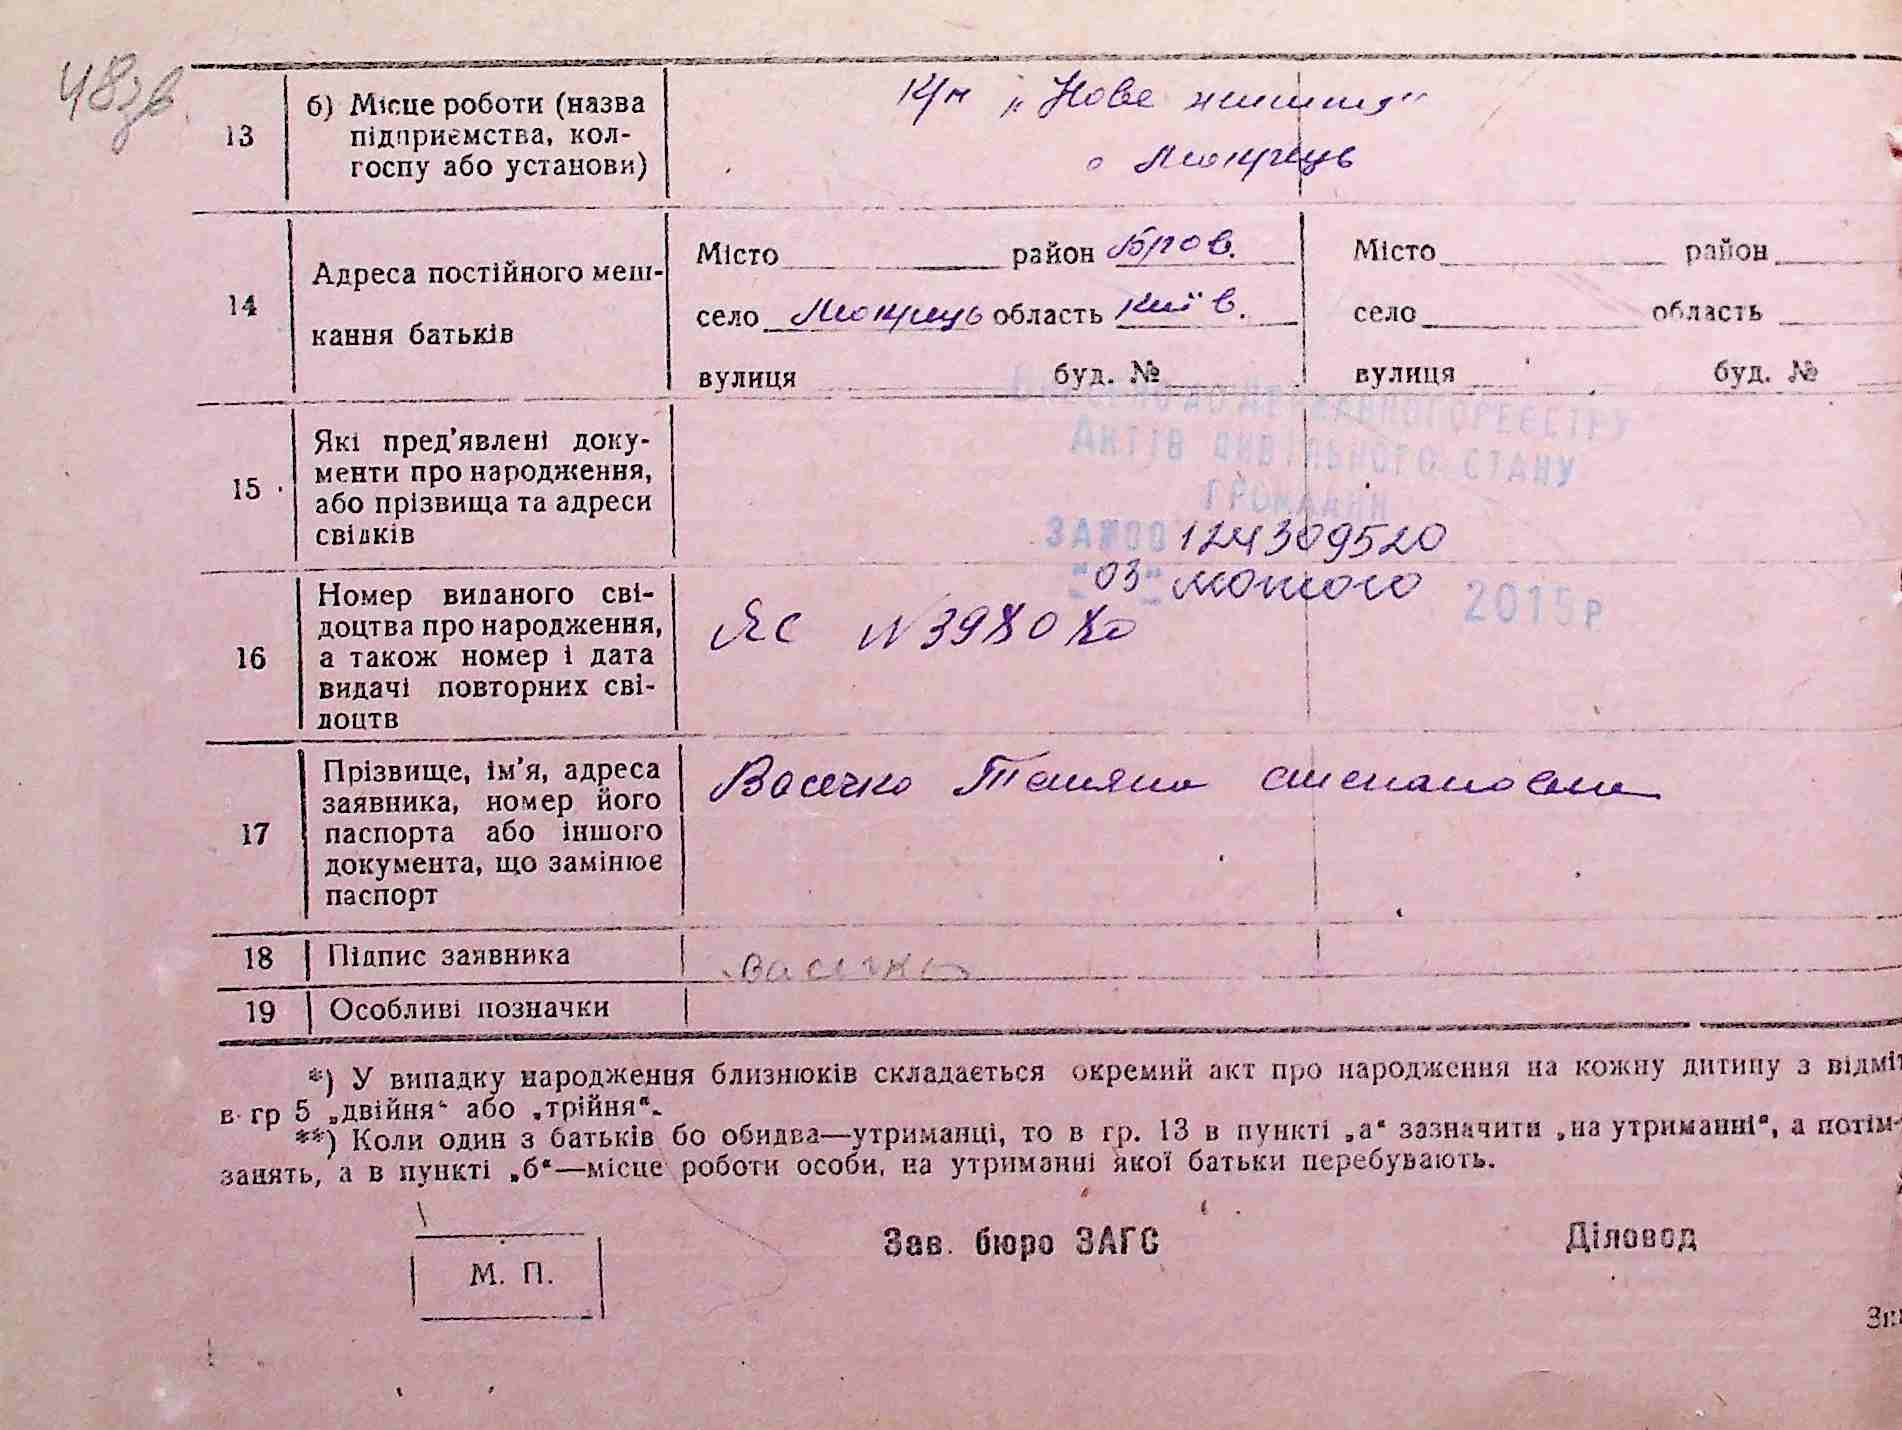 48зв
13
б) Місце роботи (назва
підприємства, кол-
госпу або установи)
К/г „Нове життя"
с Мокрець
14
Адреса постійного меш-
кання батьків
Місто район Бров.
село Мокрець область Київ.
вулиця буд. №
Місто район
село область
вулиця буд. №
15
Які пред'явлені доку-
менти про народження,
або прізвища та адреси
свідків
Внесено до Державного реєстру
Актів цивільного стану
громадян
за №00 124309520
"03" лютого 2015р
16
Номер виданого сві-
доцтва про народження,
а також номер і дата
видачі повторних сві-
доцтв
ЯС №
17
Прізвище, ім'я, адреса
заявника, номер його
паспорта або іншого
документа, що замінює
паспорт
Васечко Тетяна Степановна
18
Підпис заявника
Васечко
19
Особливі позначки
*) У випадку народження близнюків складається окремий акт про народження на кожну дитину з відміт
в гр 5 „двійня" або „трійня".
**) Коли один з батьків бо обидва—утриманці, то в гр. 13 в пункті „а" зазначити „на утриманні", а потім-
занять, а в пункті „б"—місце роботи особи, на утриманні якої батьки перебувають.
М. П.
Зав. бюро ЗАГС
Діловод